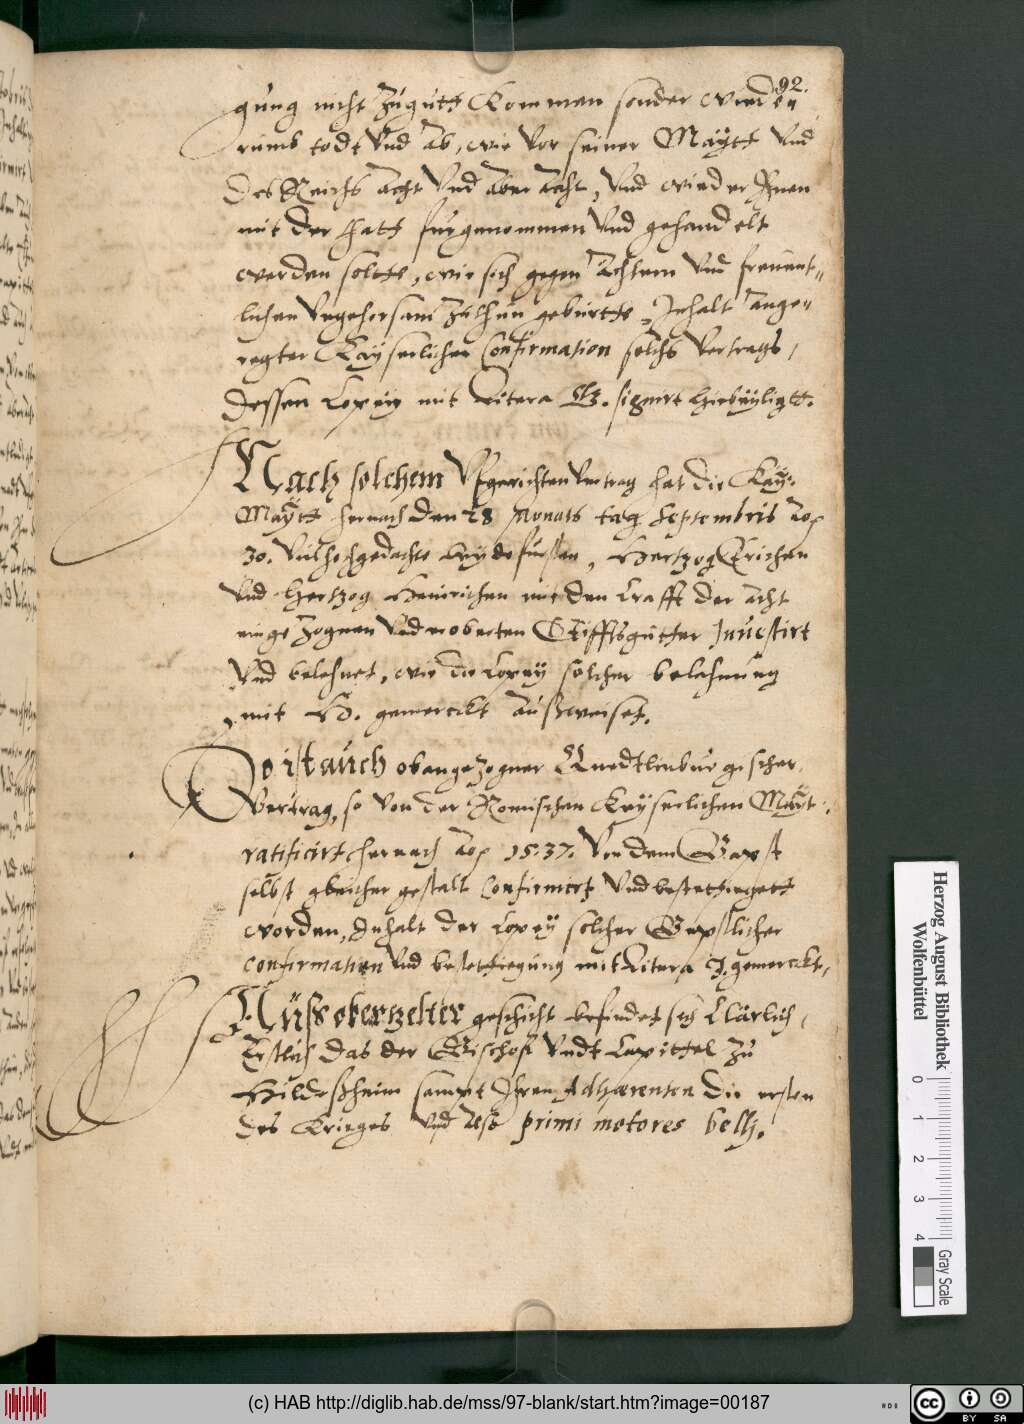 92.
gung nicht zu gutt Kommen sonder wurden
rumb todt vnd ab, wie vor seiner Maytt vnd
des Reichs acht vnd aber acht, vnd wieder Ihnen
mit der thatt furgenommen vnd gehandelt
werden soltte, wie sich gegen Achtern vnd freuent-
lichen vngehorsam zuthun geburtte, Inhalt ange-
regter Kayserlicher Confirmation solchs Vertrags,
dessen Copey mit Litera G. signirt hiebeyligtt.
Nach solchem Vfgerichten Vertrag hat die Kay:
Maytt hernach den 28 Monats tag Septembris Aõ
30. vilhochgedachte beyde fursten, Hertzog Erichen
vnd Hertzog Heinrichen mit den Crafft der acht
eingezognen vnd eroberten Stifftsgutter Inuestirt
vnd belehnet, wie die Copey solcher belehnung
mit H. gemerckt außweiset.
So ist auch obangezogner Quedtlenburgischer
Vertrag, so von der Romischen Keyserlichen Maytt:
ratificirt hernach Aõ 1537. Von dem Bapst
selbst gleicher gestalt Confirmirt vnd bestettiegett
worden, Inhalt der Copey solcher Bapstlicher
confirmation vnd bestettiegung mit Litera J. gemerckt,
Auss oberzelter geschicht befindet sich Clärlich,
Erstlich das der Bischoff vndt Capittel zu
Hildeßheim sampt Ihren Adhaerenten die ersten
des Krieges vnd also primi motores bellj.
Herzog August Bibliothek
Wolfenbüttel
0 1 2 3 4
Gray Scale
(c) HAB http://diglib.hab.de/mss/97-blank/start.htm?image=00187
cc BY SA